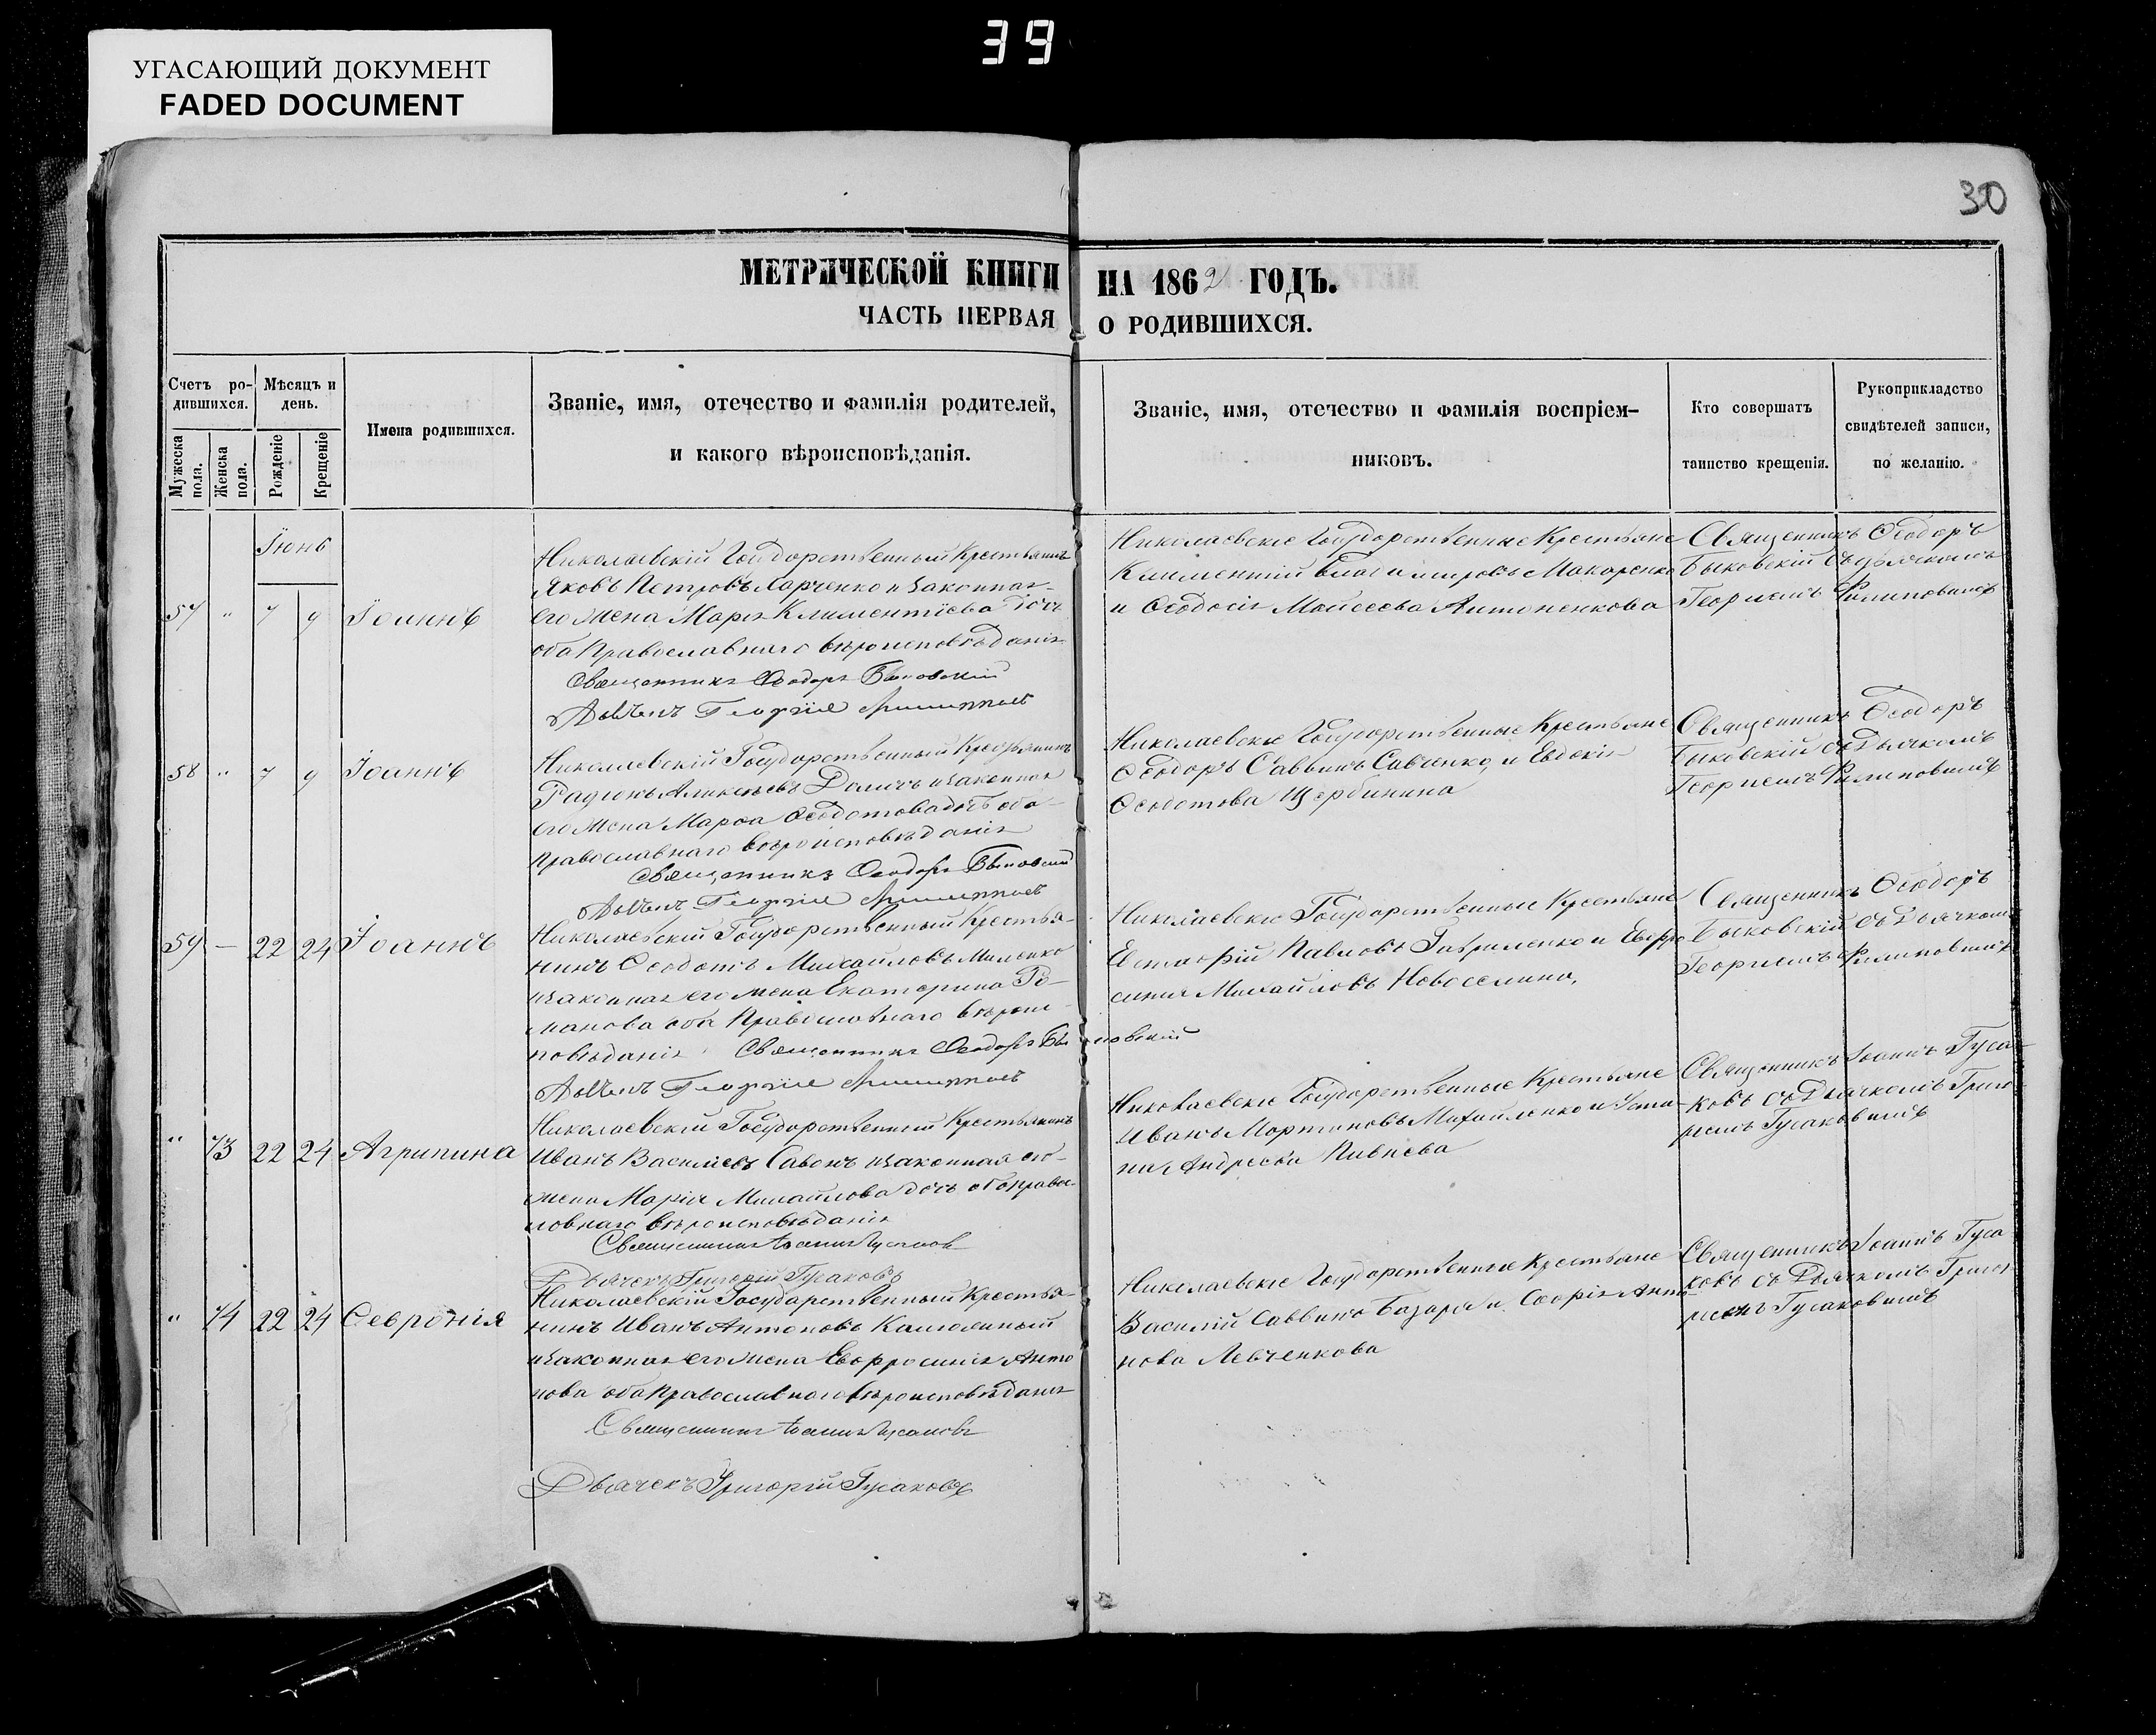 39
УГАСАЮЩИЙ ДОКУМЕНТ
FADED DOCUMENT
30
МЕТРИЧЕСКОЙ КНИГИ НА 1862 ГОДЪ.
ЧАСТЬ ПЕРВАЯ О РОДИВШИХСЯ.
Счетъ ро-
дившихся.
Мужеска пола.
Женска пола.
Мѣсяцъ и
день.
Рожденіе
Крещеніе
Имена родившихся.
Званіе, имя, отечество и фамилія родителей,
и какого вѣроисповѣданія.
Званіе, имя, отечество и фамилія воспріем-
никовъ.
Кто совершатъ
таинство крещенія.
Рукоприкладство
свидѣтелей записи,
по желанію.
Іюнь
57 " 7 9 Іоаннъ
Николаевскій Государственный Крестьянинъ
Яковъ Петровъ Харченко и законная
его жена Марія Климентіева
оба Православнаго вѣроисповѣданія
Священникъ Ѳеодоръ Быковскій
Дьячекъ Георгій
Николаевскіе Государственные Крестьяне
Климентій Владимировъ Макаренко
и Ѳеодосія Моисеева Антоненкова
Священникъ Ѳеодоръ
Быковскій съ дьячкомъ
Георгіемъ Филиповимъ
58 " 7 9 Іоаннъ
Николаевскій Государственный Крестьянинъ
Радіонъ и законная
его жена Марѳа Ѳеодотова оба
Православнаго вѣроисповѣданія
Священникъ Ѳеодоръ Быковскій
Дьячекъ Георгій
Николаевскіе Государственные Крестьяне
Ѳеодоръ Саввинъ Савченко, и Евдокія
Ѳеодотова Щербинина
Священникъ Ѳеодоръ
Быковскій съ Дьячкомъ
Георгіемъ Филиповимъ
59 — 22 24 Іоаннъ
Николаевскій Государственный Крестья-
нинъ Ѳеодотъ Михайловъ
и законная его жена Екатерина Ро-
манова оба Православнаго вѣроис-
повѣданія Священникъ Ѳеодоръ Быковскій
Дьячекъ Георгій
Николаевскіе Государственные Крестьяне
Евстафій Павловъ Гавриленко и Евфро-
синія Михайловъ Новоселина,
Священникъ Ѳеодоръ
Быковскій съ Дьячкомъ
Георгіемъ Филиповимъ
" 73 22 24 Агрипина
Николаевскій Государственный Крестьянинъ
Иванъ Василіевъ Савонъ и законная его
жена Марія Михайлова оба право-
славнаго вѣроисповѣданія
Священникъ Іоаннъ Гусаковъ
Дьячекъ Григорій Гусаковъ
Николаевскіе Государственные Крестьяне
Иванъ Мартиновъ Михайленко и Усти-
нія Андреева Пивнева
Священникъ Іоаннъ Гуса-
ковъ съ Дьячкомъ Григо-
ріемъ Гусаковимъ
" 74 22 24 Севронія
Николаевскій Государственный Крестья-
нинъ Иванъ Антоновъ
и законная его жена Евфросинія Анто
нова оба Православнаго вѣроисповѣданія
Священникъ Іоаннъ Гусаковъ
Дьячекъ Григорій Гусаковъ
Николаевскіе Государственные Крестьяне
Василій Саввинъ Базара и Софія Анто
нова Левченкова
Священникъ Іоаннъ Гуса
ковъ съ Дьячкомъ Григо
ріемъ Гусаковимъ